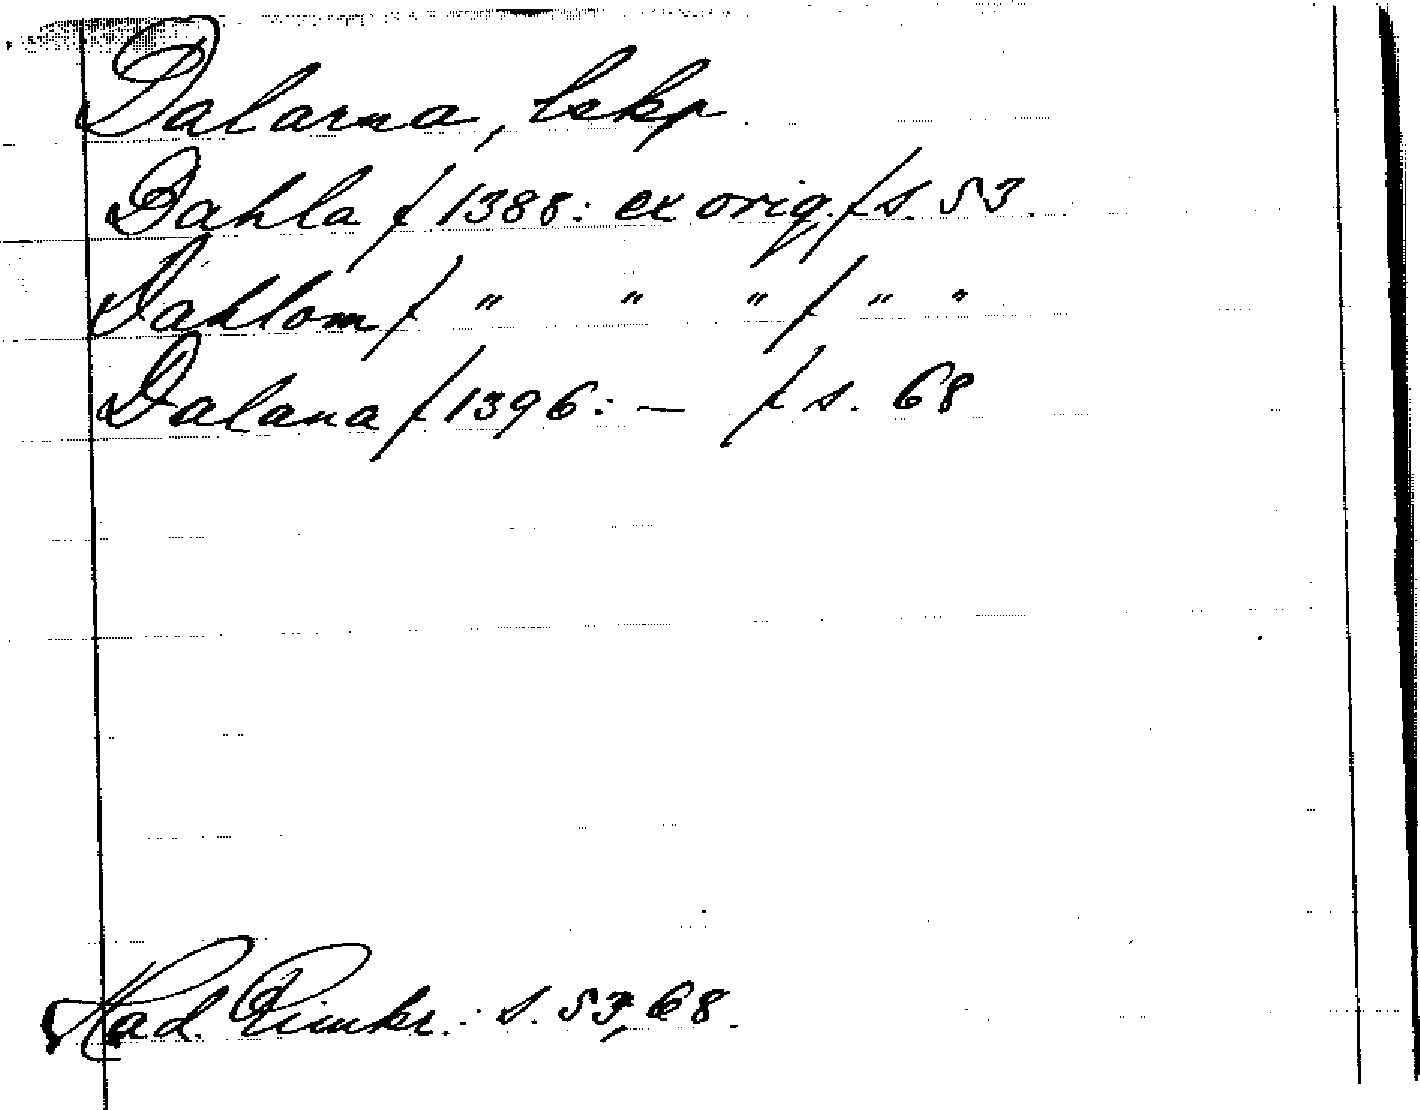 Dalarna, lskp
Dahla / 1388: ex orig. / s. 53.
Dahlom / " " " / " "
Dalana / 1396: — / s. 68
Had. Rimkr. : s. 53, 68.